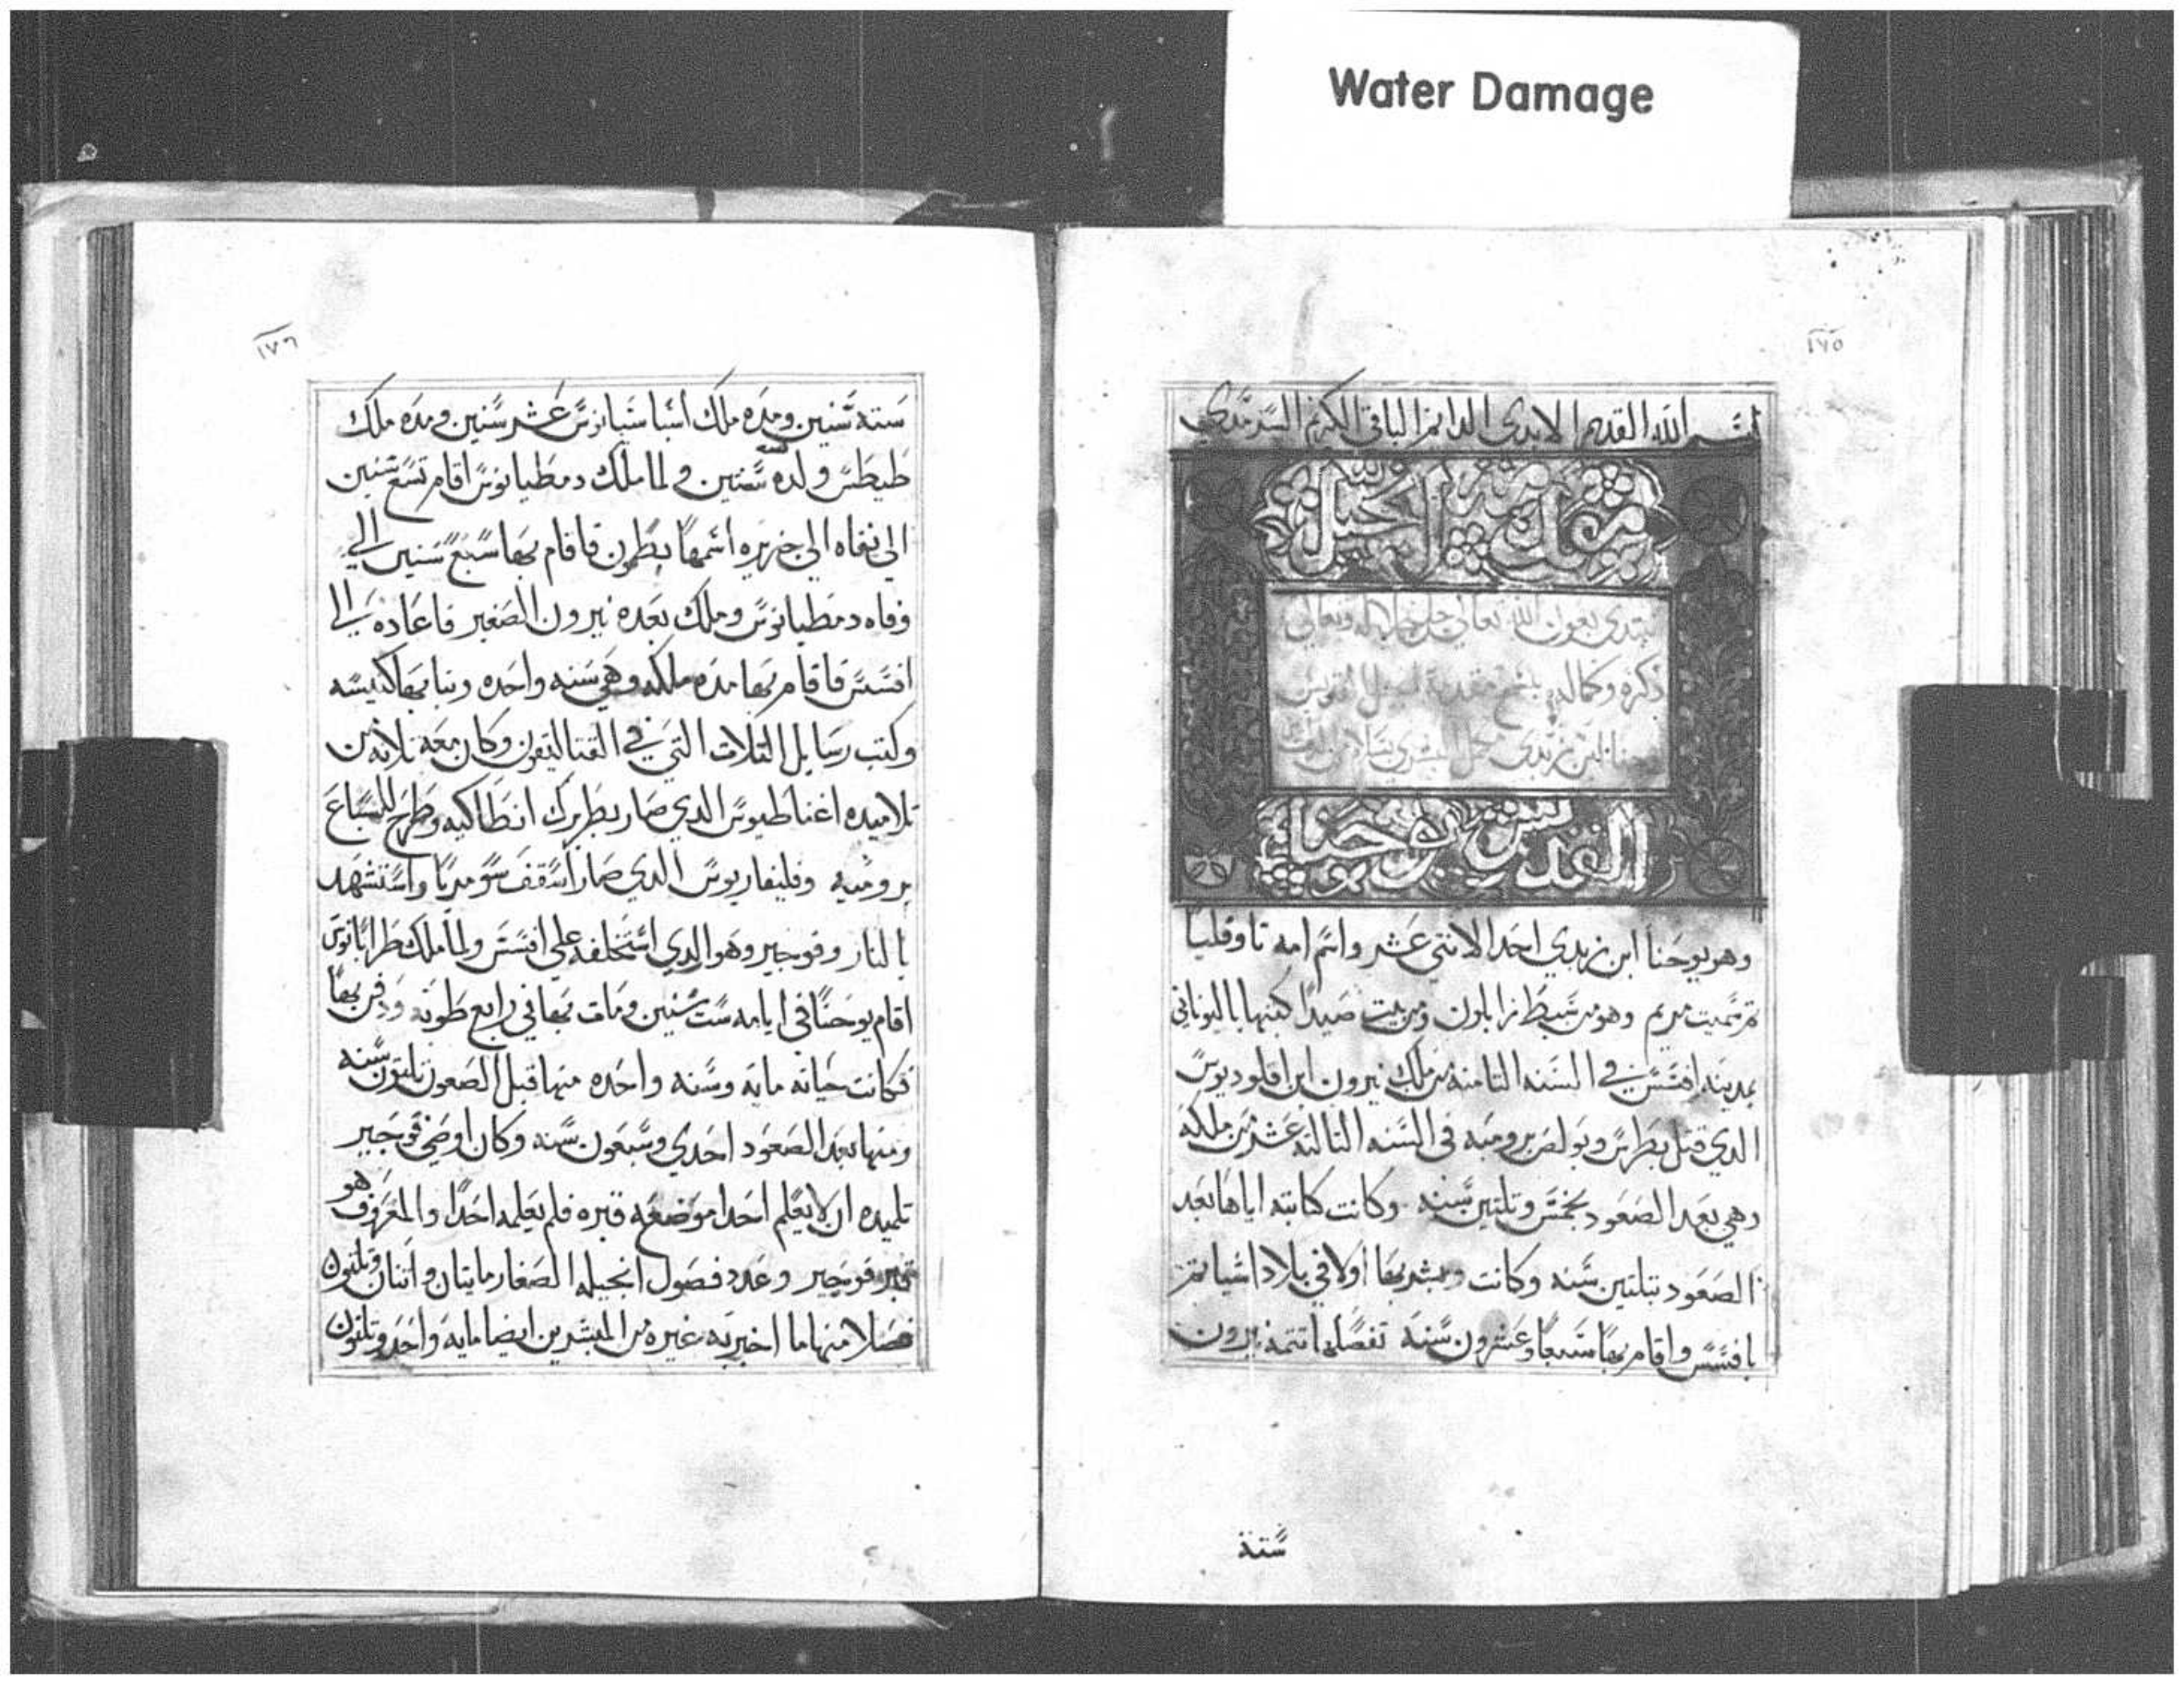 Water Damage
١٧٥
بسم الله القديم الابدي الدايم الباقي الكريم السرمدي
مقدمة الانجيل
نبتدي بعون الله تعالي
ذكره وكماله بشرح مقدمة انجيل القديس
يوحنا ابن زبدي
القديس يوحنا
وهو يوحنا ابن زبدي احد الاتني عشر واسم امه تاوفليا
تم سميت مريم وهو من سبط زابلون ومن بيت صيدا كتبها باليوناني
بمدينه افسس في السنه التامنه من ملك نيرون ابن اقلوديوس
الدي قتل بطرس وبولص برومية في السنه التالته عشر من ملكه
وهي بعد الصعود بخمس وتلتين سنه وكانت كتابته اياها بعد
الصعود بتلتين سنه وكانت وبشر بها اولا في بلاد اشيا تم
بافسس واقام بها سبعا وعشرون سنة تفصلها تتمة نيرون
ستة
١٧٦
سته سنين ومده ملك اسباسيانوس عشر سنين ومده ملك
طيطس ولده سنتين ولما ملك دمطيانوس اقام تسع سنين
الي نفاه الي جزيره اسمها بطمون فاقام بها سبع سنين الي
وفاه دمطيانوس وملك بعده نيرون الصغير فاعاده الي
افسس فاقام بها مده ملكه وهي سنه واحده وبنا بها كنيسه
وكتب رسايل التلات التي في القتاليقون وكان معه تلاته من
تلاميده اغناطيوس الدي صار بطريرك انطاكيه وطرح للسباع
برومية وفليفاربوس الدي صار اسقف سوميرنا واستشهد
بالنار وفوجير وهو الدي استخلفه علي افسس ولما ملك طرابانوس
اقام يوحنا في ايامه ست سنين ومات بها في رابع طوبه ودفن بها
فكانت حياته مايه وسنه واحده منها قبل الصعود تلتون سنه
ومنها بعد الصعود احدي وسبعون سنه وكان اوصي فوجير
تلميده ان لا يعلم احدا موضعه قبره فلم يعلمه احدا والمعروف هو
قبر فوجير وعدد فصول انجيله الصغار مايتان واتنان وتلتون
فصلا منها ما اخبر به غيره من المبشرين ايضا مايه واحد وتلتون